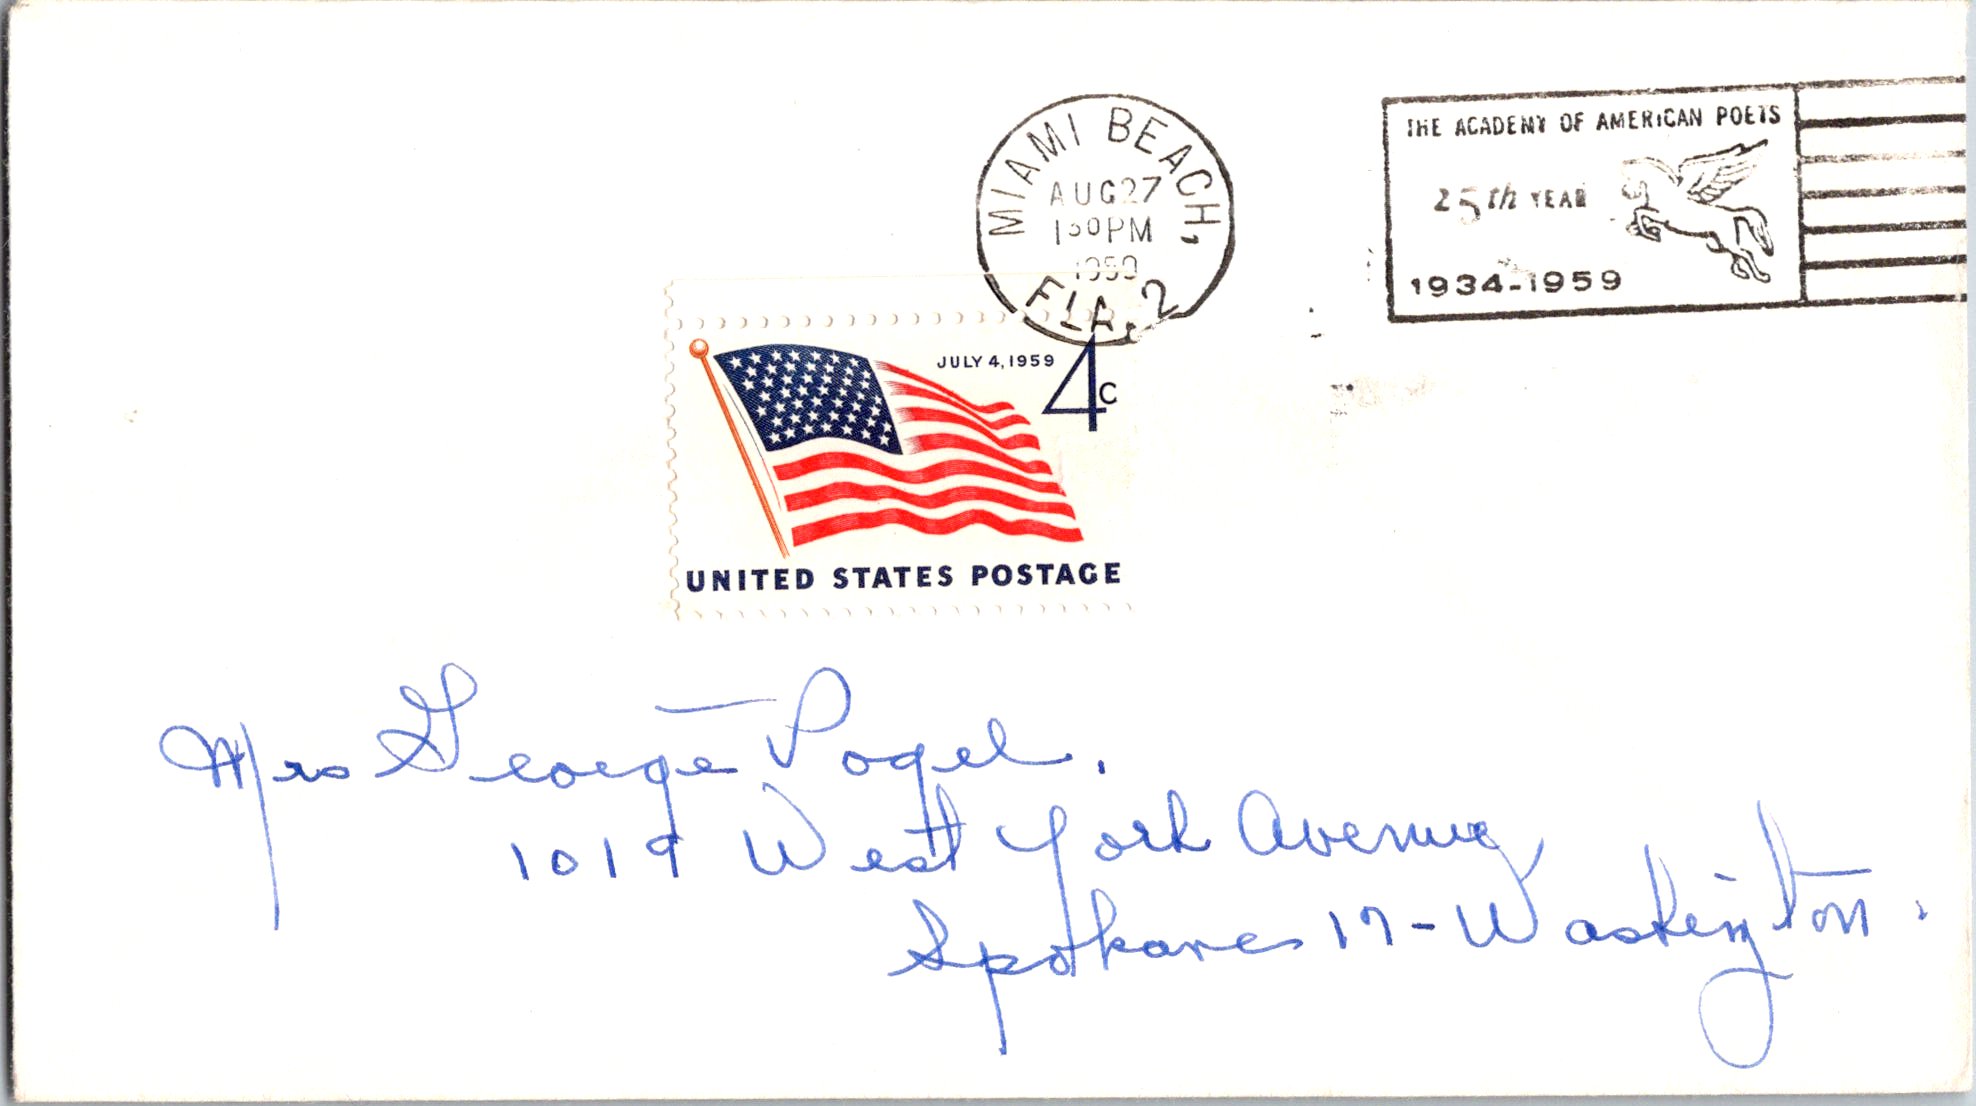 MIAMI BEACH,
AUG 27
1 30 PM
1959
FLA. 2
THE ACADEMY OF AMERICAN POETS
25th YEAR
1934-1959
JULY 4, 1959
4c
UNITED STATES POSTAGE
Mrs George Pogel.
1019 West York Avenue
Spokane 17 - Washington.